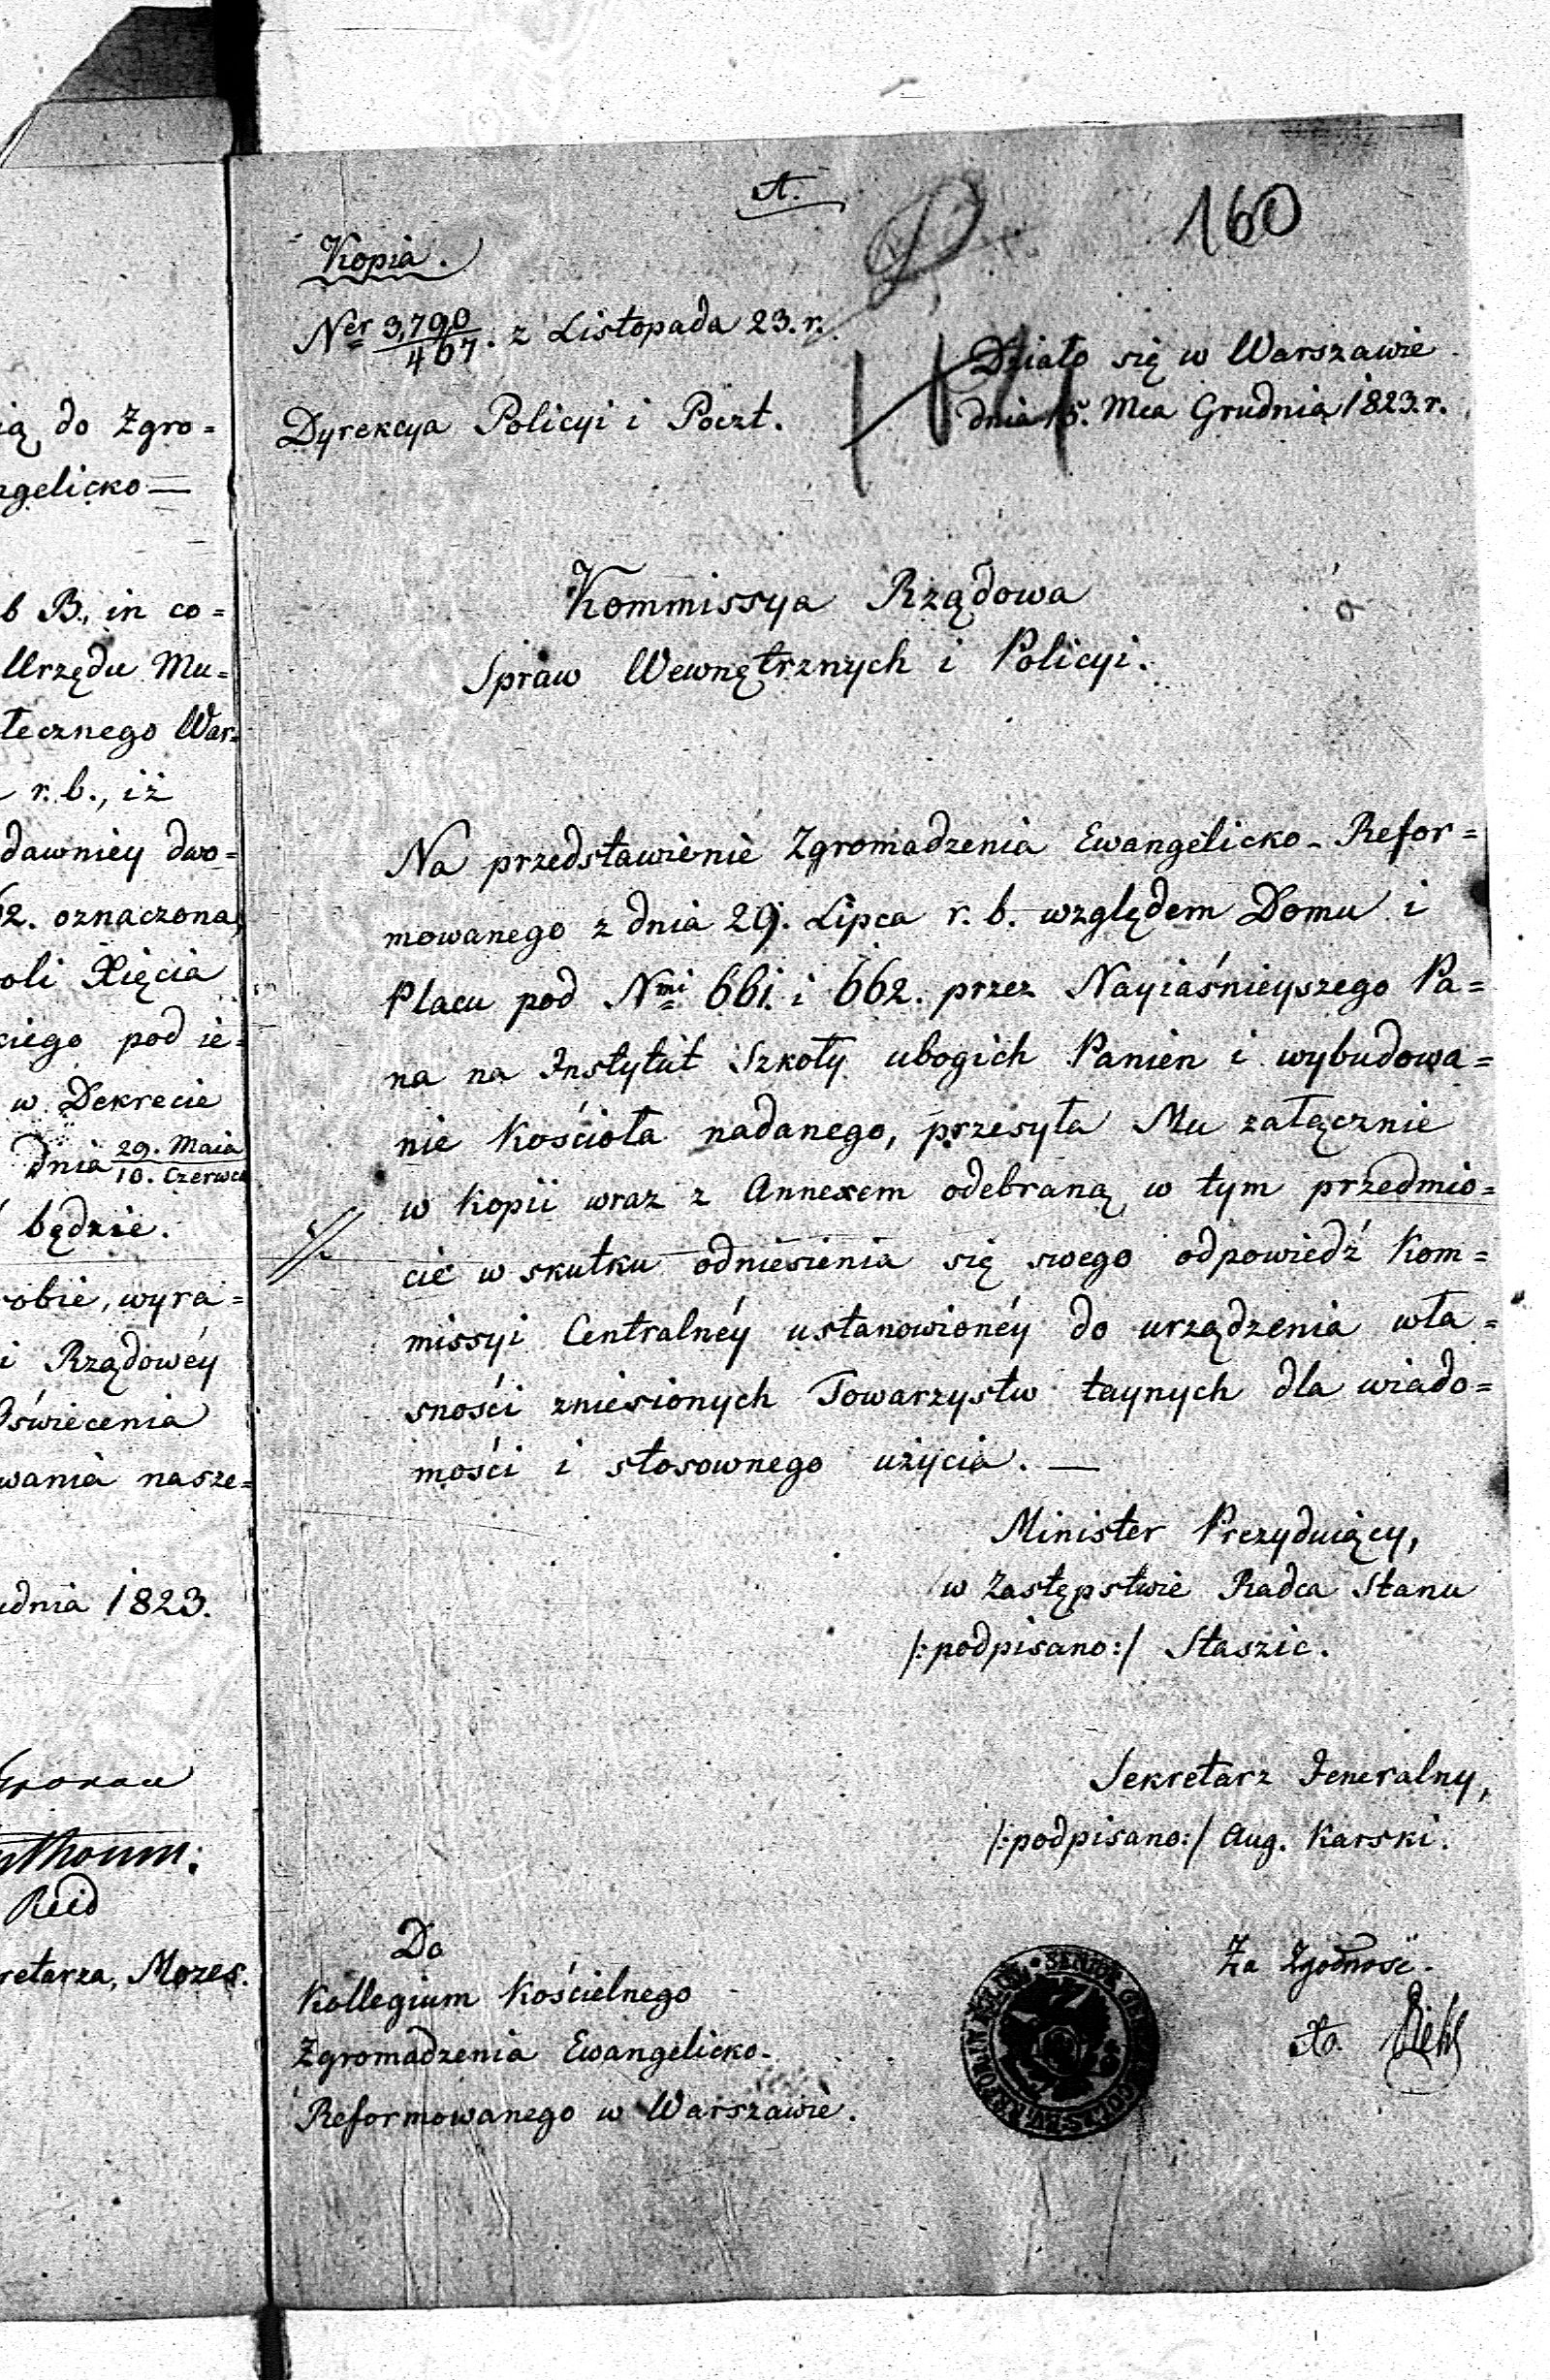 ią do Zgro=
ngelicko—
b B., in co=
Urzędu Mu=
tecznego War=
r. b., iż
dawniey dwo=
62. oznaczona,
oli Xięcia
kiego pod ie=
w Dekrecie
dnia 29. Maia / 10. Czerwca
będzie.
obie, wyra=
i Rządowéy
Oświecenia
wania nasze=
udnia 1823.
Reid
retarza, Mozes.
A.
160
Kopia.
Ner 3,790/467. z Listopada 23. r.
Działo się w Warszawie
dnia 15. Mca Grudnia 1823. r.
Dyrekcya Policyi i Poczt.
Kommissya Rządowa
Spraw Wewnętrznych i Policyi.
Na przedstawienie Zgromadzenia Ewangelicko-Refor=
mowanego z dnia 29. Lipca r. b. względem Domu i
Placu pod Nmi 661. i 662. przez Nayiaśnieyszego Pa=
na na Instytut Szkoły ubogich Panien i wybudowa=
nie Kościoła nadanego, przesyła Mu załącznie
w kopii wraz z Annexem odebraną w tym przedmio=
cie w skutku odniesienia się swego odpowiedź Kom=
missyi Centralnéy ustanowionéy do urządzenia wła=
sności zniesionych Towarzystw taynych dla wiado=
mości i stosownego użycia. —
Minister Prezyduiący,
w Zastępstwie Radca Stanu
/:podpisano:/ Staszic.
Sekretarz Jeneralny,
/:podpisano:/ Aug. Karski.
Do
Kollegium Kościelnego
Zgromadzenia Ewangelicko-
Reformowanego w Warszawie.
Za Zgodność.